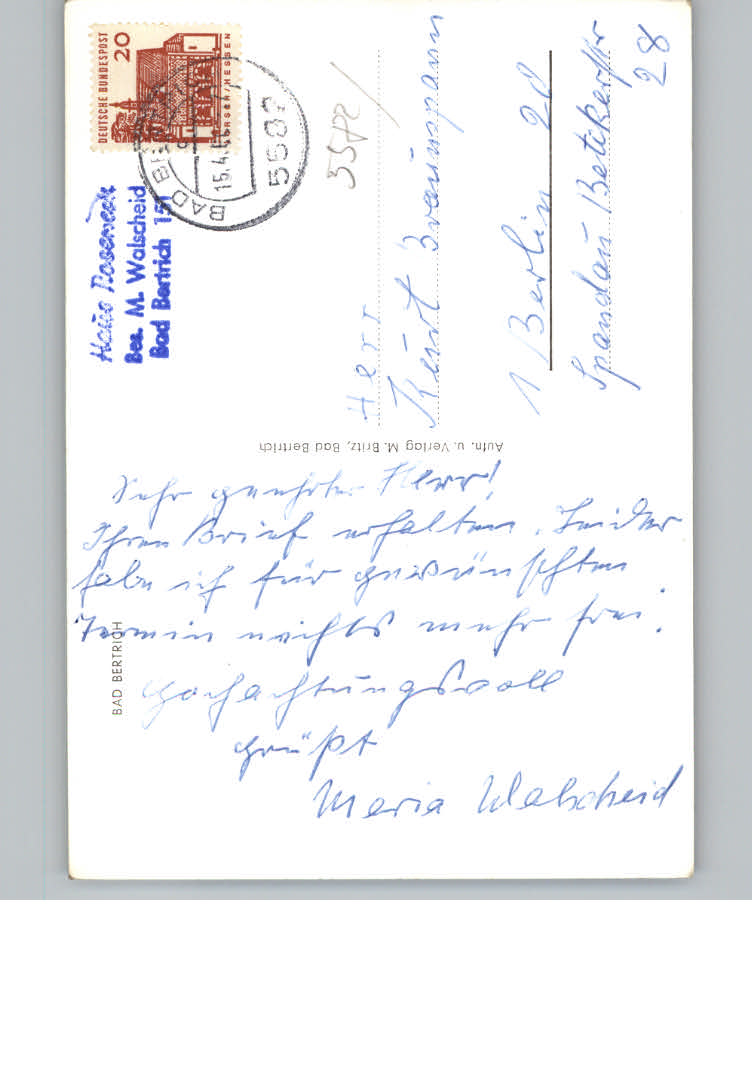 DEUTSCHE BUNDESPOST
20
LORSCH/HESSEN
BAD BERTRICH
15.4.
5582
Haus Roseneck
Bes. M. Walscheid
Bad Bertrich 151
5582
Herr
Kurt Braunspann
1 Berlin 20
Spandau
28
Aufn. u. Verlag M. Britz, Bad Bertrich
BAD BERTRICH
Sehr geehrter Herr!
Ihren Brief erhalten. Leider
habe ich für gewünschten
Termin nichts mehr frei.
Hochachtungsvoll
grüßt
Maria Walscheid